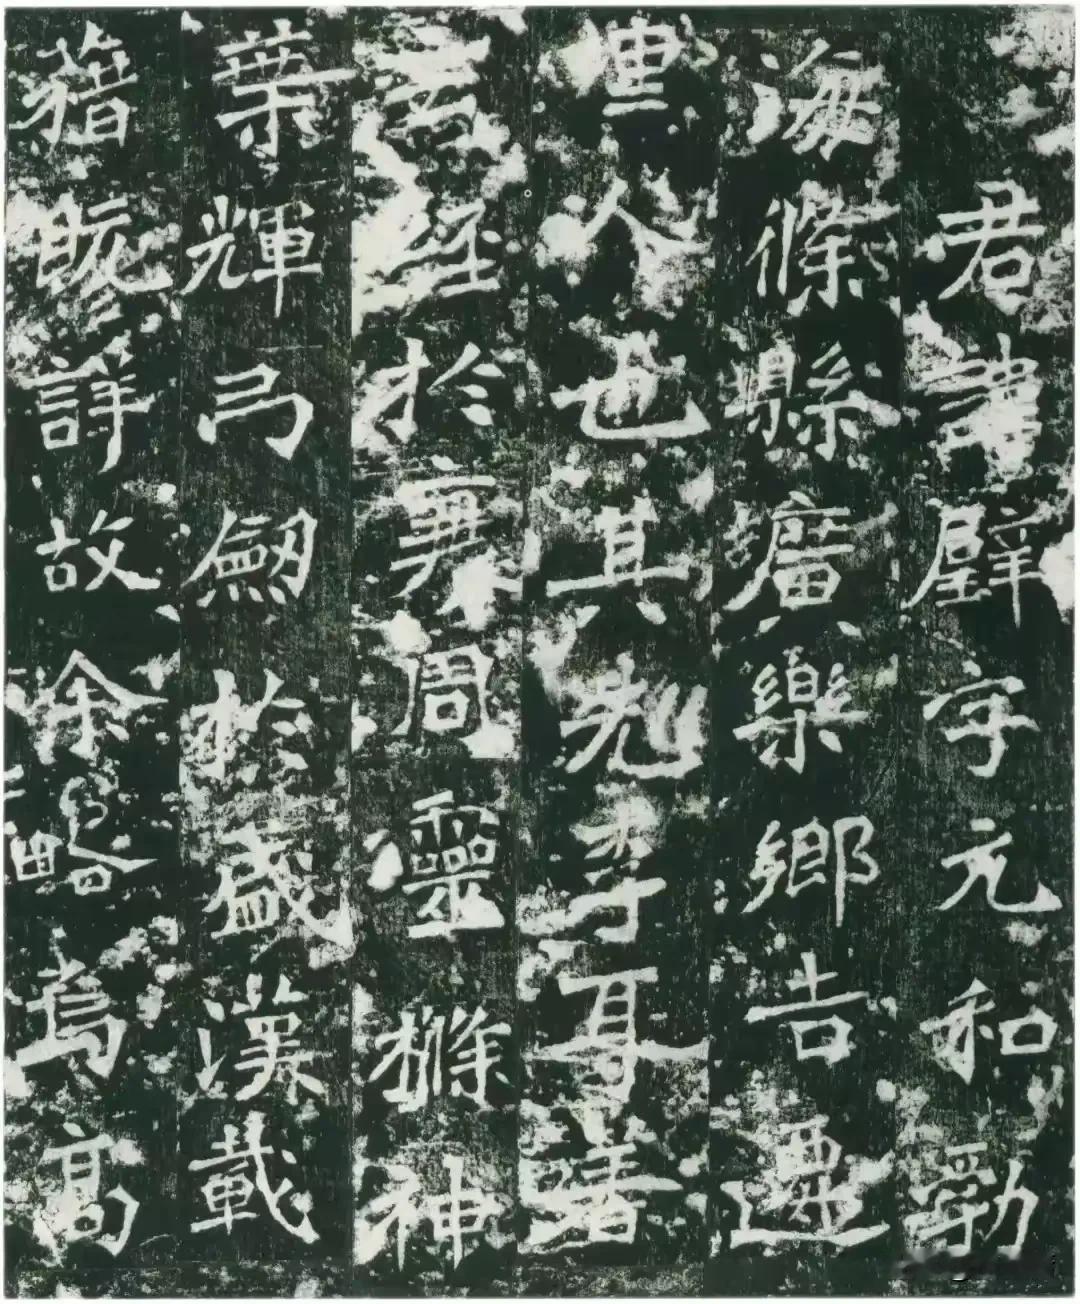 君諱璧字元和勃
海條縣廣樂鄉吉遷
里人也其先李耳著
玄經於衰周靈條神
葉輝弓劒於盛漢載
籍既詳故余略焉高